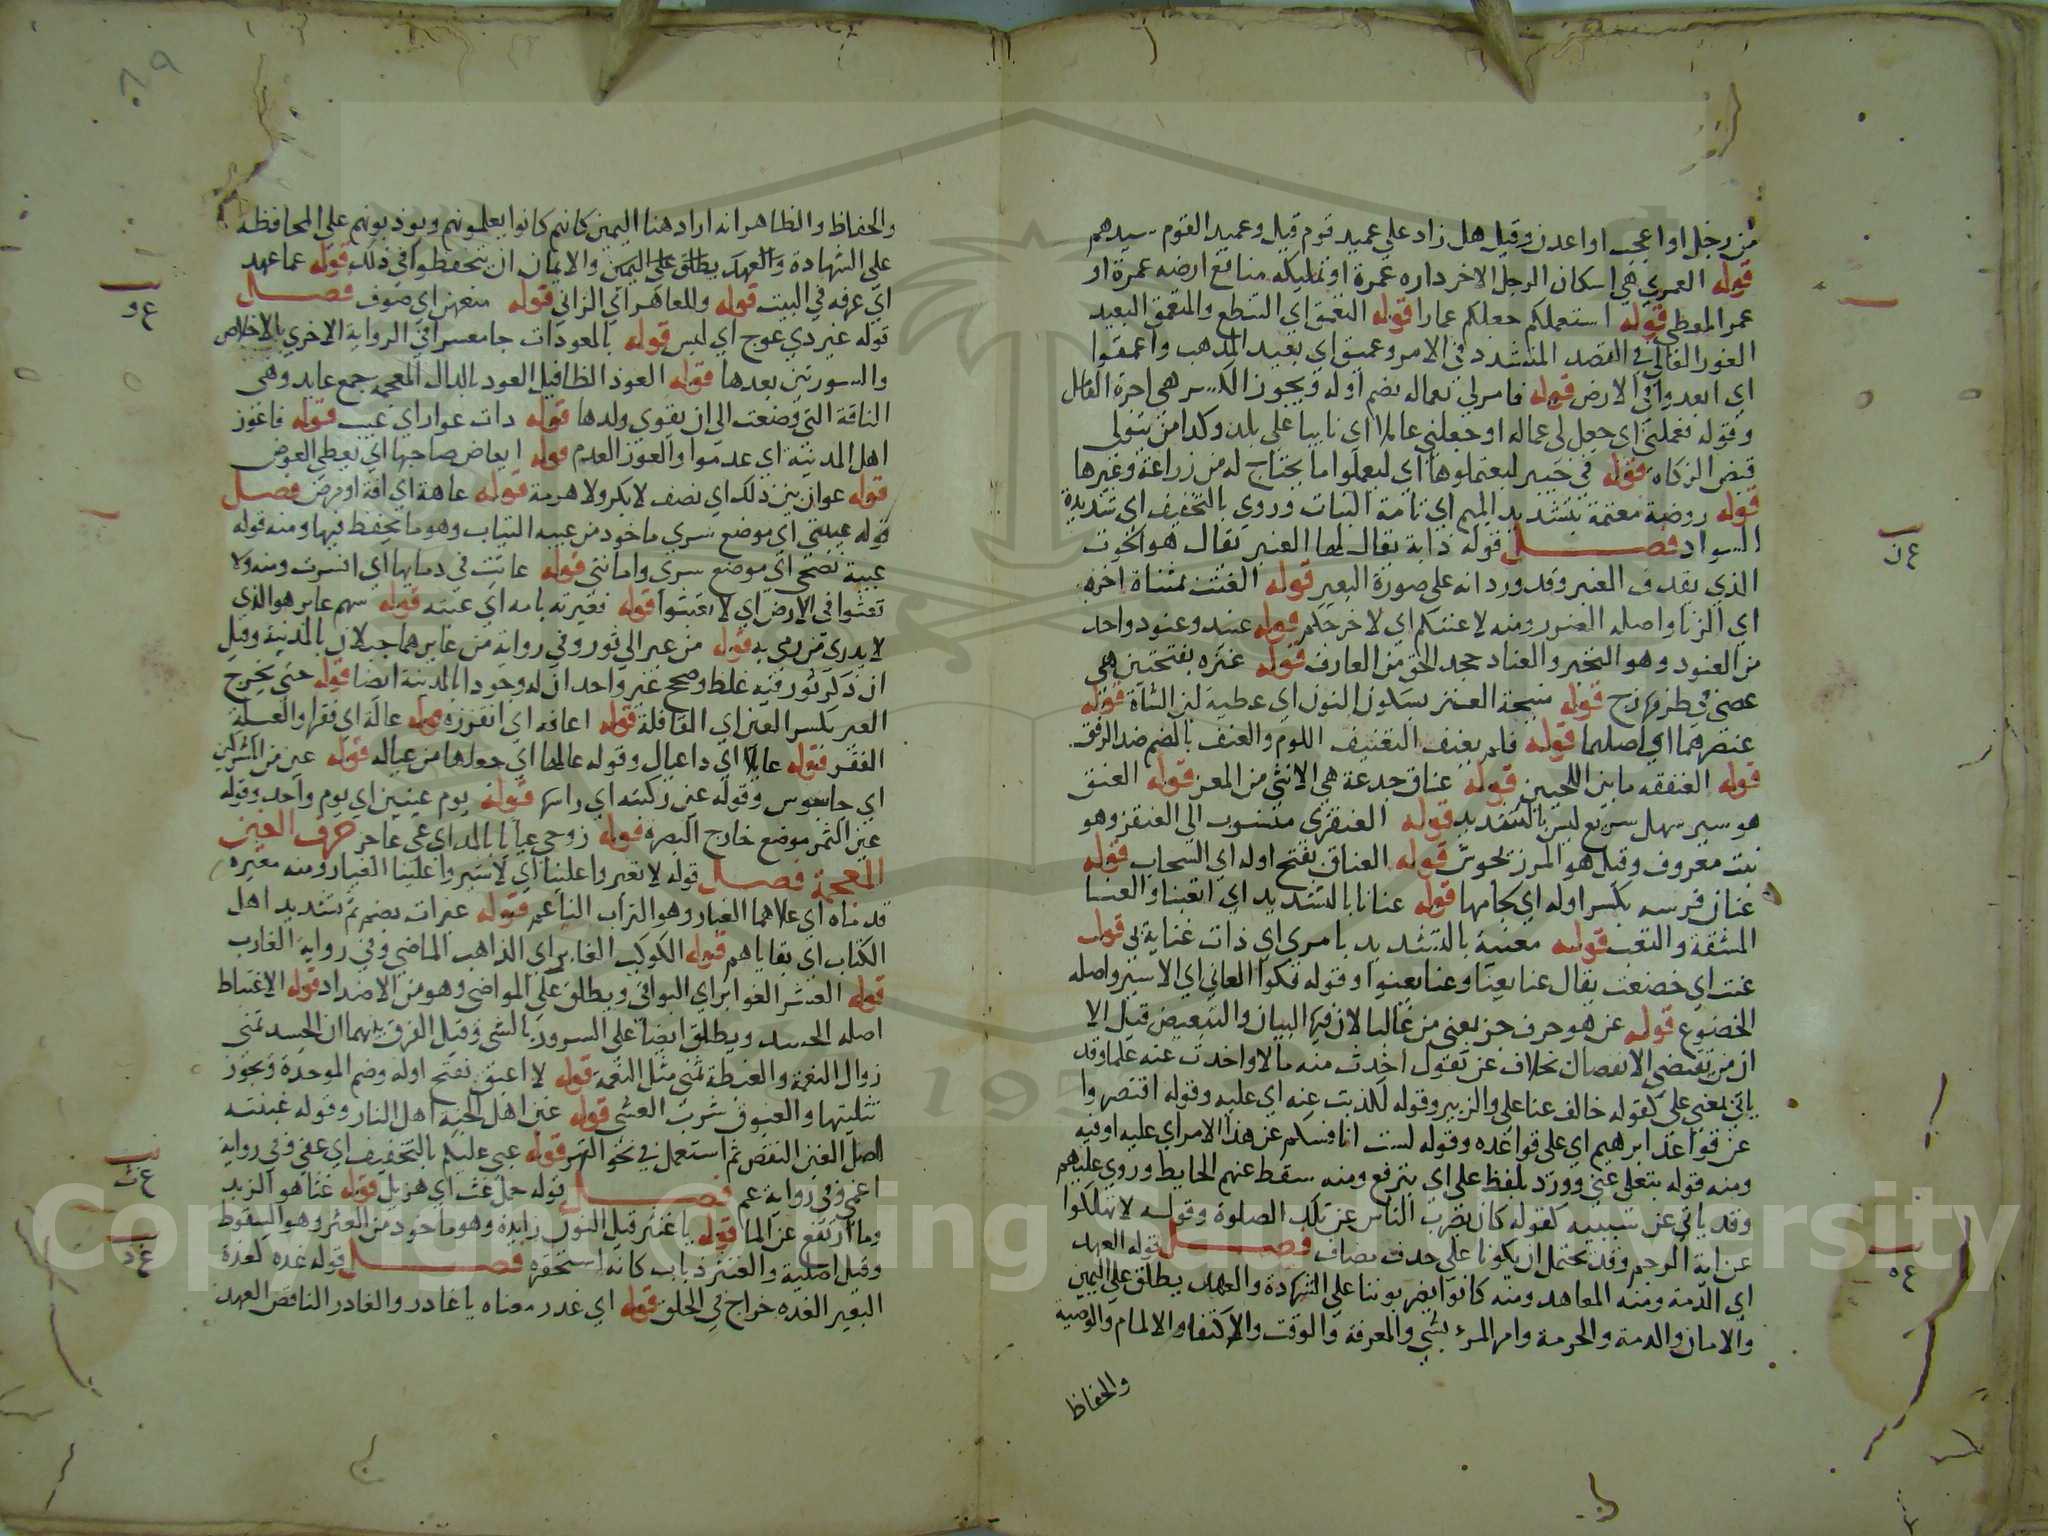 من رجل او اعجب او اعدن وقيل هل زاد على عميد قوم قيل وعميد القوم سيدهم
قوله العمري هي اسكان الرجل الاخر داره عمره او تمليكه منافع ارضه عمره او
عمر المعطي قوله استعملكم جعلكم عمارا قوله التعمق اي التنطع والمتعمق البعيد
الغور الغالي في القصد المتشدد في الامر وعميق اي بعيد المذهب واعمقوا
اي ابعدوا في الارض قوله فامر لي بعماله بضم اوله ويجوز الكسر هي اجرة العامل
وقوله فعملني اي جعل لي عماله او جعلني عاملا اي نايبا على بلد وكذا من يتولى
قبض الزكاه قوله في خيبر ليعتملوها اي ليعملوا ما يحتاج له من زراعة وغيرها
قوله روضة معتمة بتشديد الميم اي تامة النبات وروي بالتخفيف اي شديدة
السواد فصل قوله دابة يقال لها العنبر يقال هو الحوت
الذي يقذف العنبر وقد ورد انه على صورة البعير قوله العنت بمثناة اخره
اي الزنا واصله الضرر ومنه لاعنتكم اي لاحرجكم قوله عنيد وعنود واحد
من العنود وهو التجبر والعناد جحد الحق من العارف قوله عنزه بفتحتين هي
عصى في طرفها زج قوله منيحة العنز بسكون النون اي عطية لبن الشاة قوله
عنصرهما اي اصلهما قوله فلم يعنف التعنيف اللوم والعنف بالضم ضد الرفق
قوله العنفقه ما بين اللحيين قوله عناق جدعة هي الانثى من المعز قوله العنق
هو سير سهل سريع ليس بالشديد قوله العنقزي منسوب الى العنقز وهو
نبت معروف وقيل هو المرزنجوش قوله العنان بفتح اوله اي السحاب قوله
عنان فرسه بكسر اوله اي لجامها قوله عنانا بالتشديد اي اتعبنا والعنا
المشقة والتعب قوله معنية بالتشديد بامري اي ذات عناية بي قوله
عنت اي خضعت يقال عنا يعنا وعنا يعنوا وقوله فكوا العاني اي الاسير واصله
الخضوع قوله عن هو حرف جر بمعنى من غالبا لان فيها البيان والتبعيض قيل الا
ان من تقتضي الانفصال بخلاف عن تقول اخذت منه مالا واخذت عنه علما وقد
ياتي بمعنى على كقوله خالف عنا علي والزبير وقوله لكذبت عنه اي عليه وقوله اقتصروا
عن قواعد ابراهيم اي على قواعده وقوله لست انافسكم عن هذا الامر اي عليه او فيه
ومنه قوله يتعلى عني وورد بلفظ على اي يترفع ومنه سقط عنهم الحايط وروي عليهم
وقد ياتي عن سببيه كقوله كان يضرب الناس عن تلك الصلوة وقوله لا تهلكوا
عن اية الرجم وقد يحتمل ان يكونا على حذف مضاف فصل قوله العهد
اي الذمة ومنه المعاهد ومنه كانوا يضربوننا على الشهادة والعهد يطلق على اليمين
والامان والذمة والحرمة وامر المرء بشي والمعرفة والوقت والاكتفا والالمام والوصية
والحفاظ
ع ن
ع ه
والحفاظ والظاهر انه اراد هنا اليمين كانهم كانوا يعلمونهم ويودبونهم على المحافظة
على الشهادة والعهد يطلق على اليمين والايمان ان يتحفظوا في ذلك قوله عما عهد
اي عرفه في البيت قوله وللعاهر اي الزاني قوله منعهن اي صوف فصل
قوله غير ذي عوج اي لبس قوله بالمعوذات جا مفسرا في الرواية الاخري بالاخلاص
والسورتين بعدها قوله العوذ المطافيل العوذ بالذال المعجمة جمع عايذ وهي
الناقة التي وضعت الى ان يقوي ولدها قوله ذات عوار اي عيب قوله فاعوز
اهل المدينة اي عدموا والعوز العدم قوله ايعاض صاحبها اي يعطي العوض
قوله عوان بين ذلك اي نصف لا بكر ولا هرمة قوله عاهة اي افة او مرض فصل
قوله عيبتي اي موضع سري ماخوذ من عيبه الثياب وهو ما يحفظ فيها ومنه قوله
عيبة نصح اي موضع سري وامانتي قوله عاثت في دمايها اي انسربت ومنه ولا
تعثوا في الارض اي لا تعيثوا قوله فعيرته بامه اي عبته قوله سهم عاير هو الذي
لا يدرى من رمى به قوله من عير الى ثور وفي رواية من عاير هما جبلان بالمدينة وقيل
ان ذكر ثور فيه غلط وصحح غير واحد ان له وجودا بالمدينة ايضا قوله حتى يخرج
العير بكسر العين اي القافلة قوله اعافه اي اتقذره قوله عالة اي فقرا والعيلة
الفقر قوله عايلا اي ذا عيال وقوله عالها اي جعلها من عياله قوله عين من المشركين
اي جاسوس وقوله عين ركبته اي راسها قوله يوم عينين اي يوم واحد وقوله
عين التمر موضع خارج البصره قوله زوجي عيايا بالمد اي عي عاجز حرف الغين
المعجمة فصل قوله لا تغبروا علينا اي لا تثيروا علينا الغبار ومنه مغبره
قدماه اي علاهما الغبار وهو التراب الناعم قوله غبرات بضم ثم تشديد اهل
الكتاب اي بقاياهم قوله الكوكب الغابر اي الذاهب الماضي وفي رواية الغارب
قوله العشر الغوابر اي البواقي ويطلق على المواضي وهو من الاضداد قوله الاغتباط
اصله الحسد ويطلق ايضا على السرور بالشي وقيل الفرق بينهما ان الحسد تمني
زوال النعمة والغبطة تمني مثل النعمة قوله لا اغبق بفتح اوله وضم الموحدة ويجوز
تثليثها والغبوق شرب العشي قوله غبن اهل الجنة اهل النار وقوله غبنته
اصل الغبن النقص ثم استعمل في نحو القهر قوله غبي عليكم بالتخفيف اي خفي وفي رواية
اغمي وفي رواية غم فصل قوله جمل غث اي هزيل قوله غثا هو الزبد
وما ارتفع عن الما قوله يا غنثر قيل النون زايدة وهو ماخوذ من الغثر وهو السقوط
وقيل اصلية والغنثر ذباب كانه استحقره فصل قوله غده كغدة
البعير الغده خراج في الحلق قوله اي غدر معناه يا غادر والغادر الناقض العهد
ع و
ع ث
ع د
Copyright © King Saud University
1957